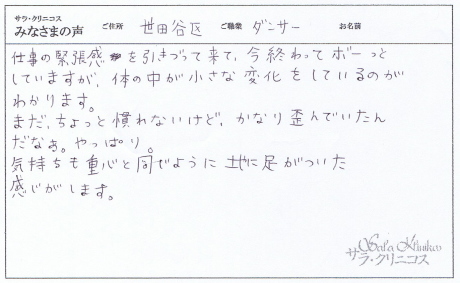 サラ・クリニコス
みなさまの声 ご住所 世田谷区 ご職業 ダンサー お名前
仕事の緊張感を引きづって来て、今終わってボーっと
していますが、体の中が小さな変化をしているのが
わかります。
まだ、ちょっと慣れないけど、かなり歪んでいたん
だなぁ。やっぱり。
気持ちも重心と同じように地に足がついた
感じがします。
Sala Klinikos
サラ・クリニコス